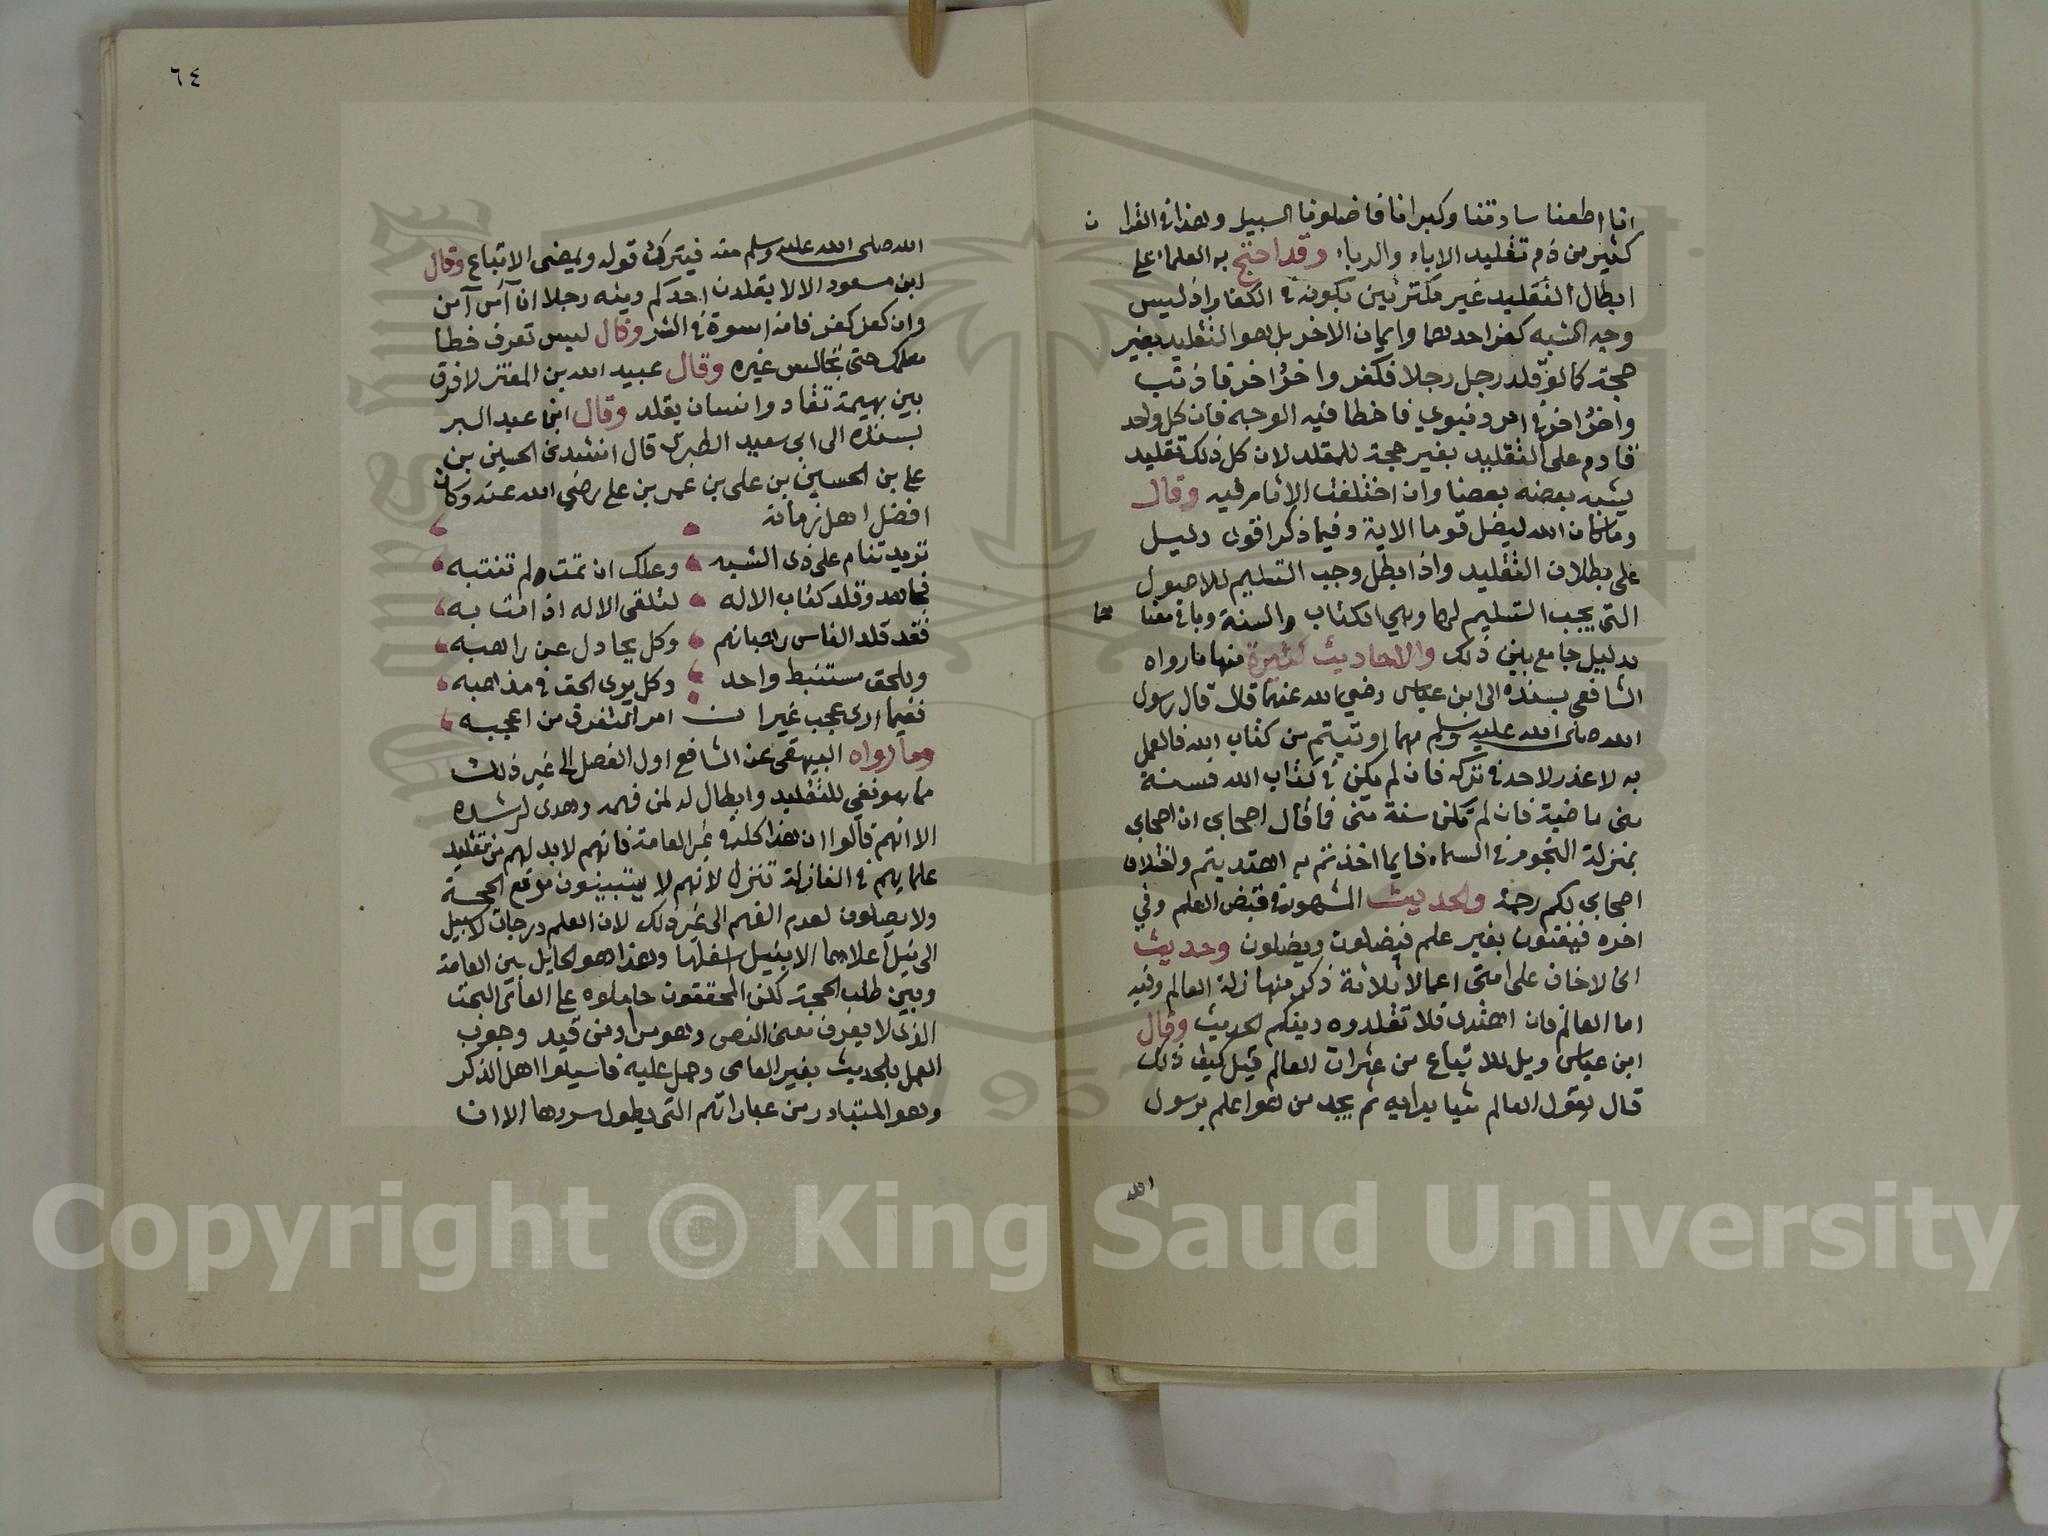 انا اطعنا سادتنا وكبرانا فاضلونا السبيل وهذا في القرا ن
كثير من ذم تقليد الاباء والروساء وقد احتج به العلماء على
ابطال التقليد غير مكترثين بكونه في الكفار اذ ليس
وجه الشبه كفر احدهما وايمان الاخر بل هو التقليد بغير
حجة كما لو قلد رجل رجلا فكفر واخر اخر فاذنب
واخر اخر في امر دنيوي فاخطا فيه الوجه فان كل واحد
قادم على التقليد بغير حجة للمقلد لان كل ذلك تقليد
يشبه بعضه بعضا وان اختلفت الاثام فيه وقال
وما كان الله ليضل قوما الاية وفيما ذكر اقوى دليل
على بطلان التقليد واذا بطل وجب التسليم للاصول
التي يجب التسليم لها وهي الكتاب والسنة وما في معنا هما
بدليل جامع بين ذلك والاحاديث كثيرة منها ما رواه
الشافعي بسنده الى ابن عباس رضي الله عنهما قال قال رسول
الله صلى الله عليه وسلم مهما اوتيتم من كتاب الله فالعمل
به لا عذر لاحد في تركه فان لم يكن في كتاب الله فسنة
مني ماضية فان لم تكن سنة مني فما قال اصحابي ان اصحابي
بمنزلة النجوم في السماء فايما اخذتم به اهتديتم واختلاف
اصحابي لكم رحمة والحديث المشهور في قبض العلم وفي
اخره فيفتون بغير علم فيضلون ويضلون وحديث
اني لاخاف على امتي اعمالا ثلاثة ذكر منها زلة العالم وفيه
اما العالم فان اهتدى فلا تقلدوه دينكم الحديث وقال
ابن عباس ويل للاتباع من عثرات العالم قيل كيف ذلك
قال يقول العالم شيا برايه ثم يجد من هو اعلم برسول
الله
٦٤
الله صلى الله عليه وسلم منه فيترك قوله ويمضي الاتباع وقال
ابن مسعود الا لا يقلدن احدكم دينه رجلا ان آمن آمن
وان كفر كفر فانه اسوة في الشر وقال ليس تعرف خطا
معلمك حتى تجالس غيره وقال عبيد الله بن المعتز لا فرق
بين بهيمة تنقاد وانسان يقلد وقال ابن عبد البر
بسنده الى ابي سعيد الطبري قال انشدني الحسين بن
علي بن الحسين بن علي بن عمر بن علي رضي الله عنه وكان
افضل اهل زمانه
تريد تنام على ذي الشبه وعلك ان تمت لم تنتبه
فجاهد وقلد كتاب الاله لتلقى الاله اذا مت به
فقد قلد الناس رهبانهم وكل يجادل عن راهبه
وللحق مستنبط واحد وكل يرى الحق في مذهبه
ففيما ارى عجب غير ان امر التفرق من اعجبه
وما رواه البيهقي عن الشافعي اول الفصل الى غير ذلك
مما هو نفي للتقليد وابطال له لمن فهمه وهدى لرشده
الا انهم قالوا ان هذا كله في غير العامة فانهم لا بد لهم من تقليد
علمايهم في النازلة تنزل لانهم لا يتبينون موقع الحجة
ولا يصلون لعدم الفهم الى غير ذلك لان العلم درجات لا سبيل
الى نيل اعلاها الا بنيل اسفلها وهذا هو الحايل بين العامة
وبين طلب الحجة لكن المحققون حاملوه على العامي البحت
الذي لا يعرف معنى النص وهو مراد من قيد وجوب
العمل بالحديث بغير العامي وحمل عليه فاسيلوا اهل الذكر
وهو المتبادر من عباراتهم التي يطول سردها الا ان
Copyright © King Saud University
1957